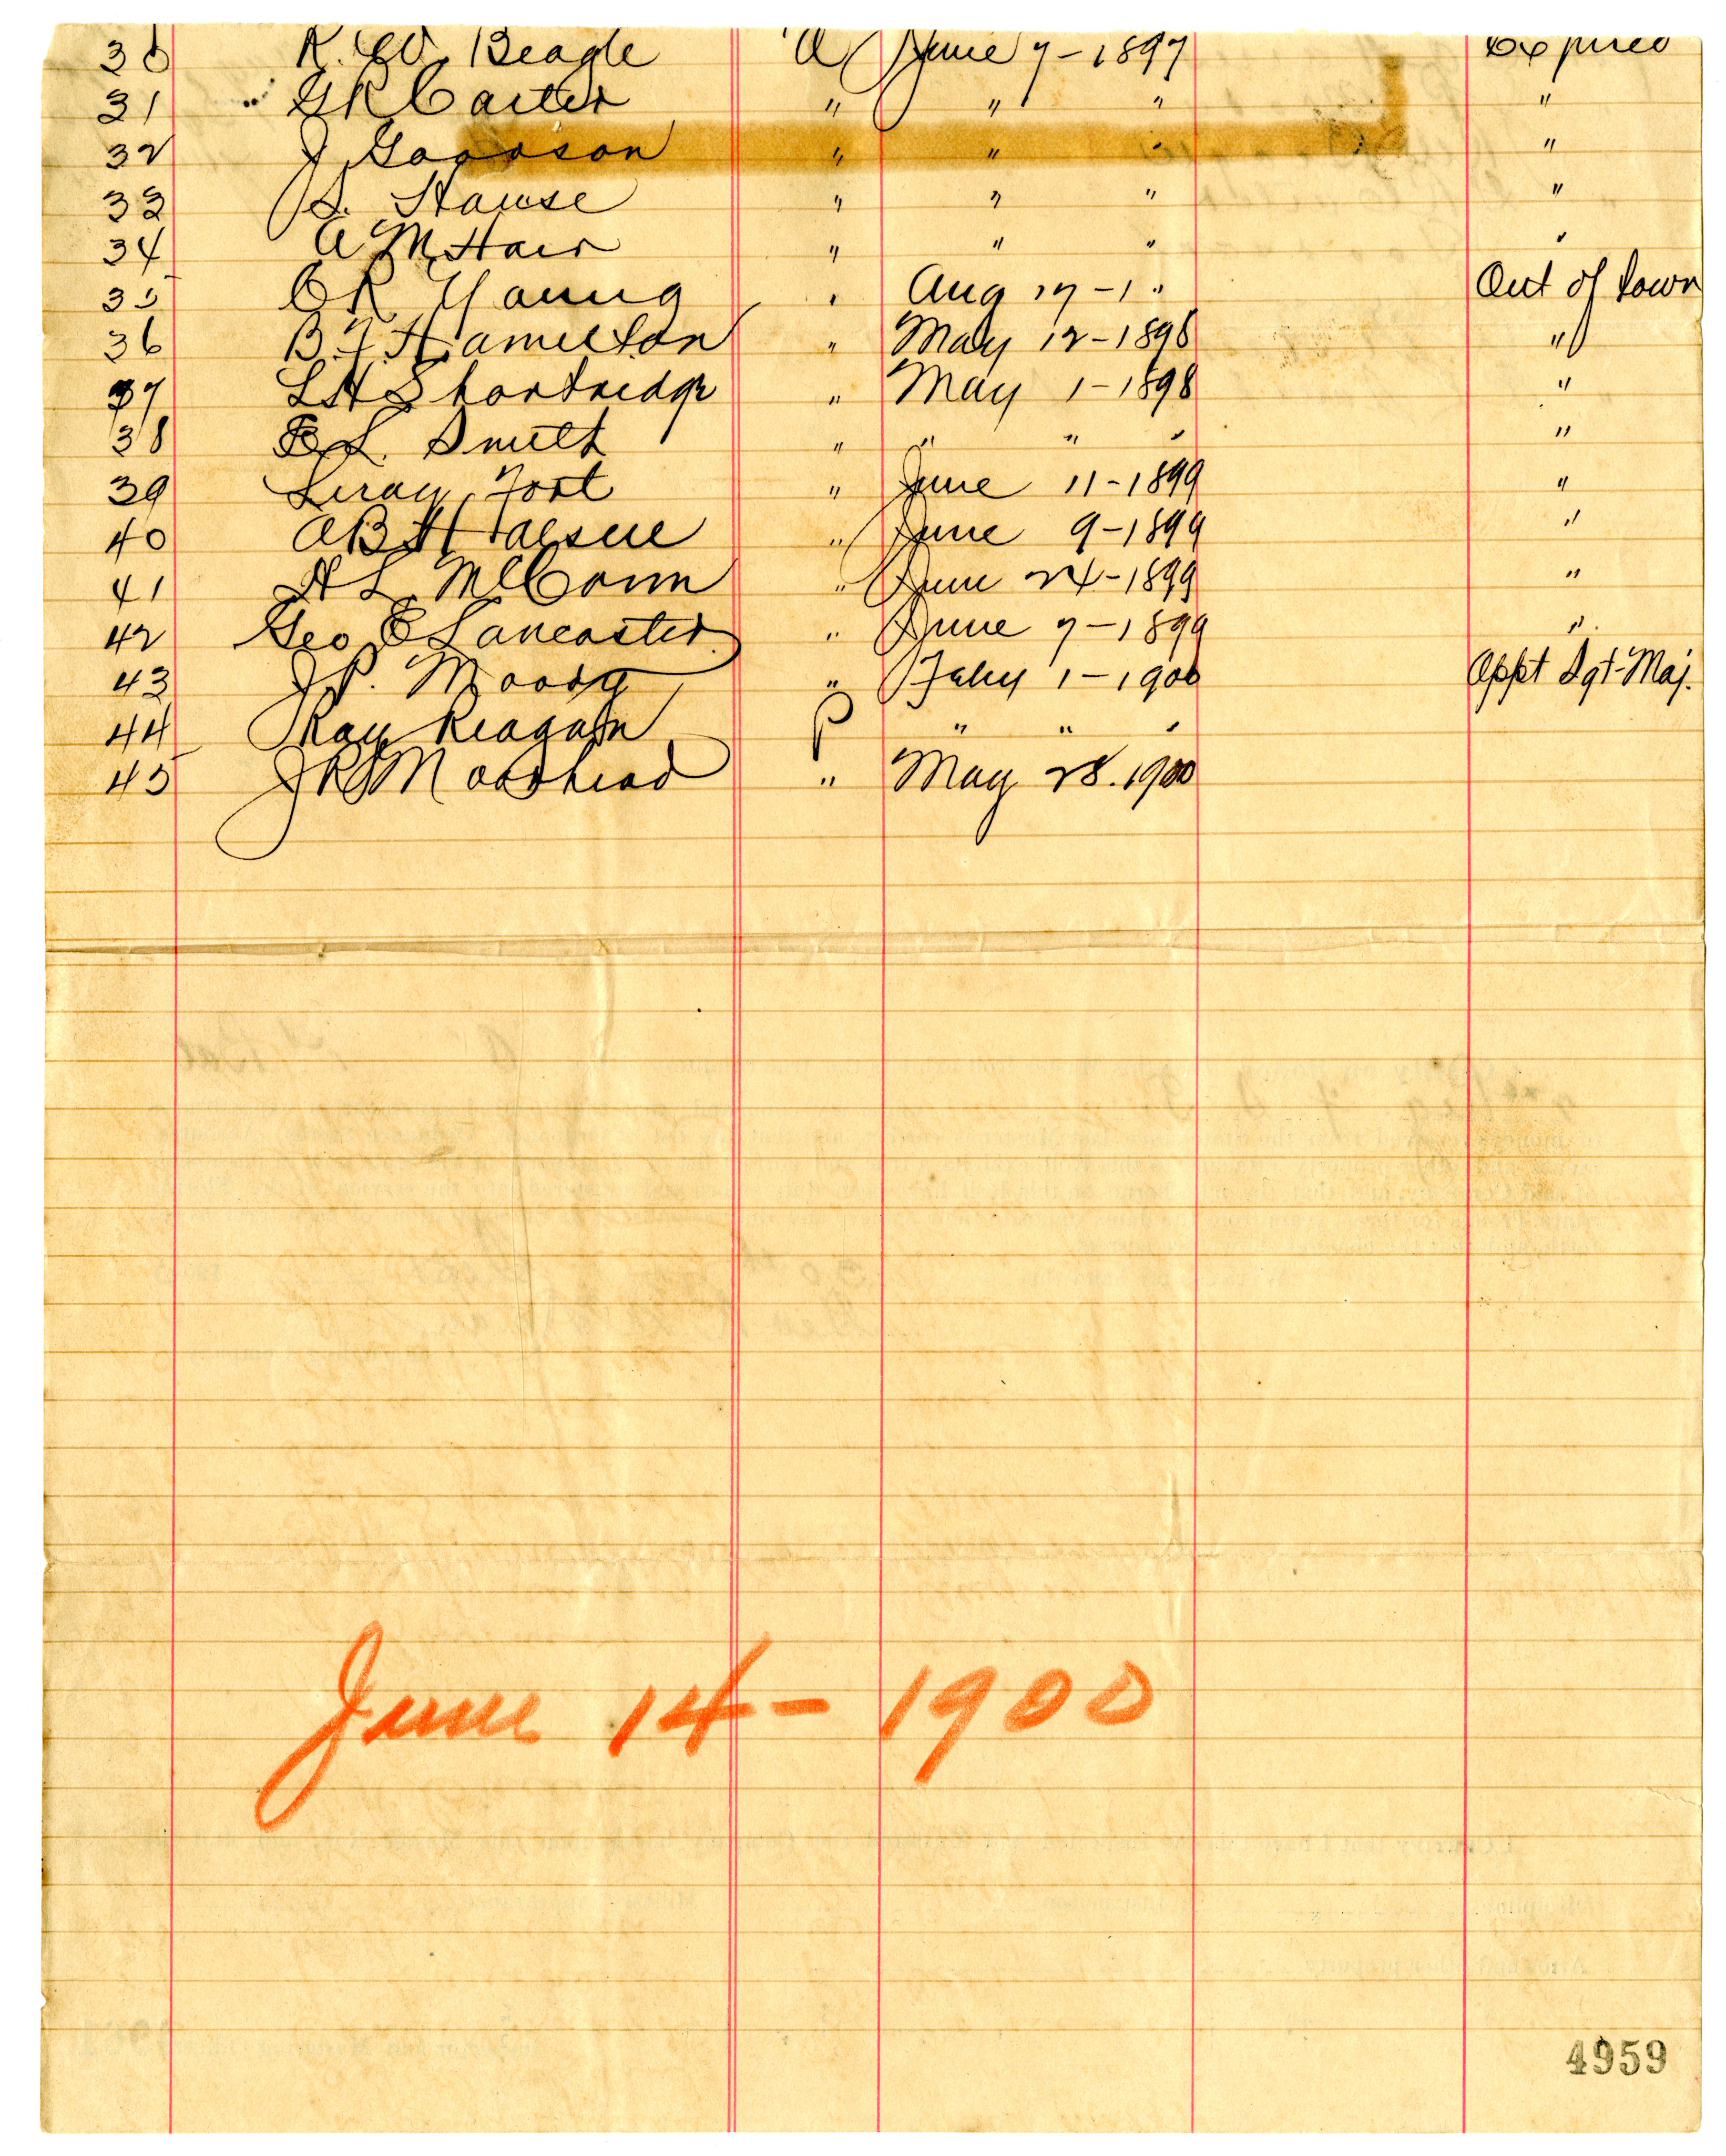 30 R. W. Beagle A June 7-1897 Expired
31 G R Carter " " " "
32 J " " " "
33 S. Hawse " " " "
34 A M Hair " " " "
35 C R Young " Aug 17-1 " Out of town
36 B. F. Hamilton " May 12-1898 "
37 L H Shortridge " May 1-1898 "
38 L. Smith " " " " "
39 Leroy Fort " June 11-1899 "
40 A B " June 9-1899 "
41 H L. McConn " June 24-1899 "
42 Geo E Lancaster " June 7-1899 "
43 J. P. Moody " Feby 1-1900 Appt Sgt-Maj.
44 Ray Reagan P " " "
45 J R Moorhead " May 28. 1900
June 14-1900
4959